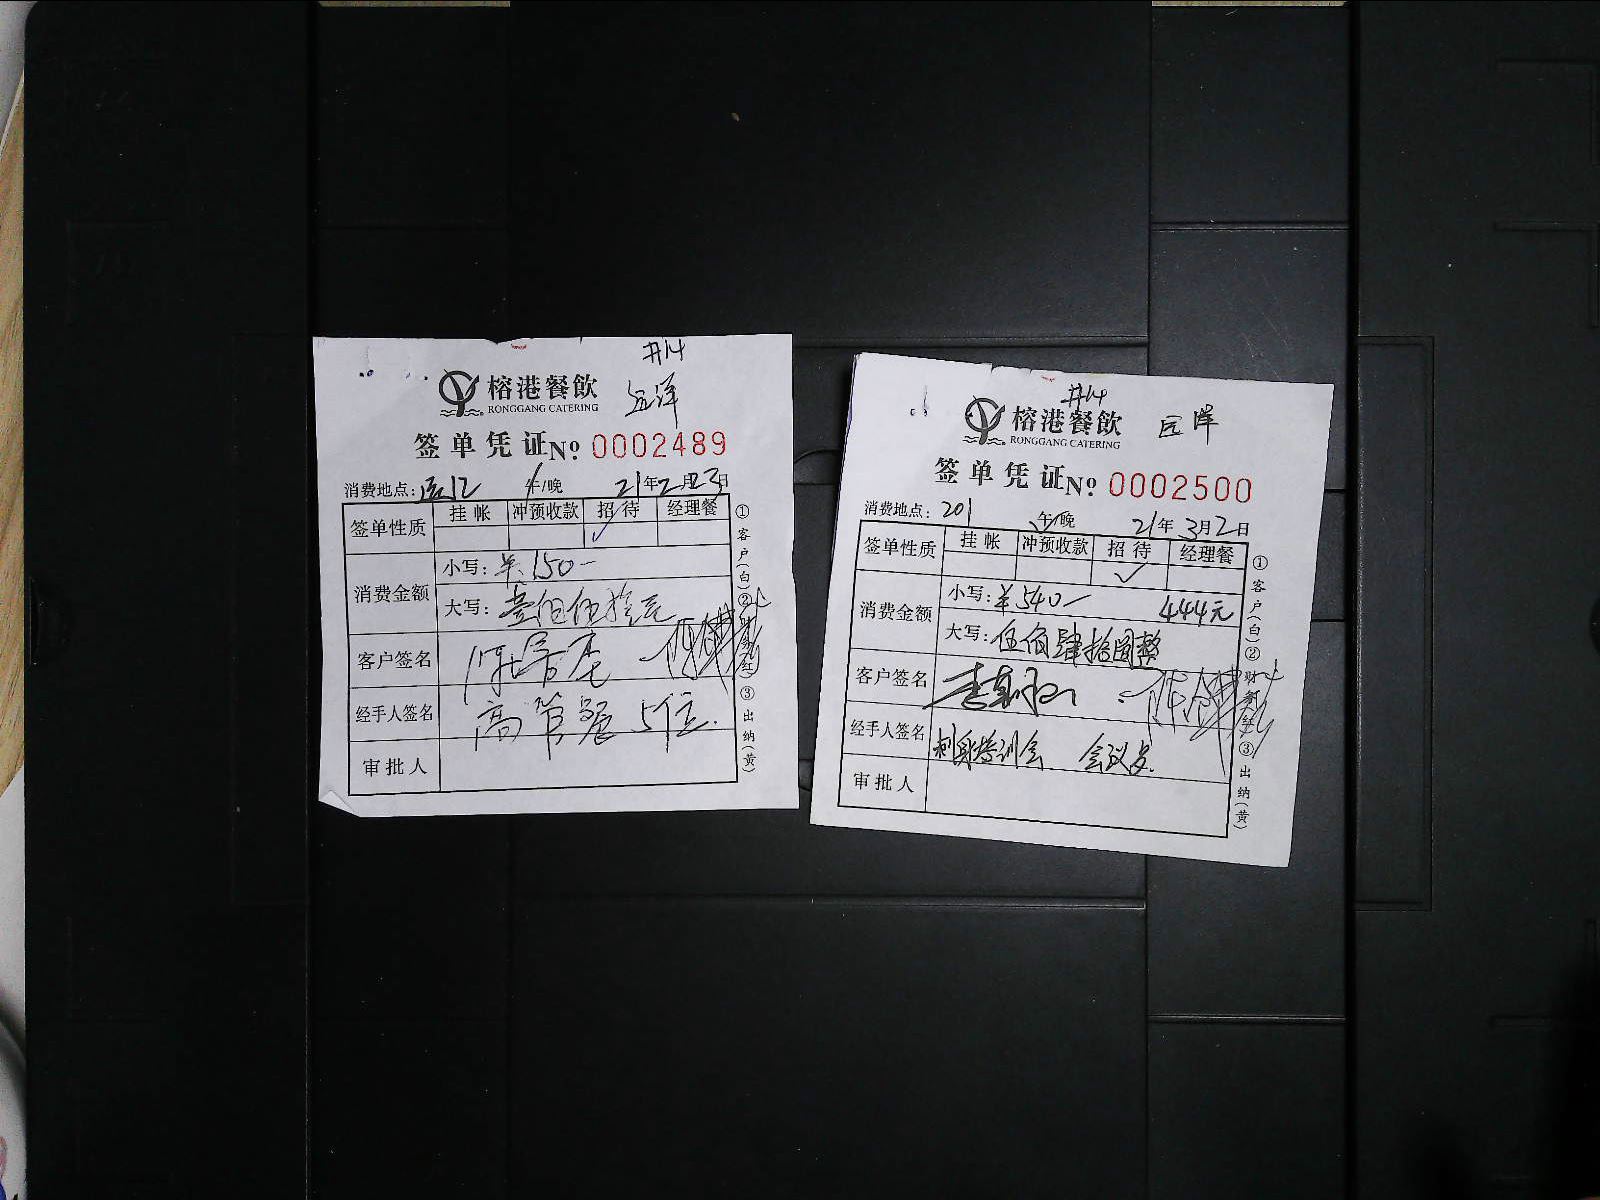 #14
榕港餐飲 远洋
RONGGANG CATERING
签单凭证№ 0002489
消费地点: 午/晚 21年2月23日
签单性质 挂帐 冲预收款 招待 经理餐
✓
消费金额 小写: ¥150-
大写: 壹佰伍拾元
客户签名
经手人签名 高管餐 5位.
审批人
①客户(白)②财务(红)③出纳(黄)
#14
榕港餐飲 远洋
RONGGANG CATERING
签单凭证№ 0002500
消费地点: 201 午/晚 21年3月2日
签单性质 挂帐 冲预收款 招待 经理餐
✓
消费金额 小写: ¥540- 444元
大写: 伍佰肆拾圆整
客户签名
经手人签名 刺身培训会
审批人
①客户(白)②财务(红)③出纳(黄)